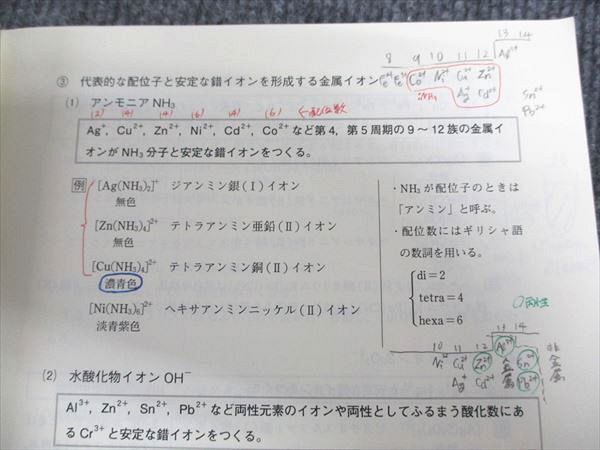 13 14
8 9 10 11 12 Al³⁺
③ 代表的な配位子と安定な錯イオンを形成する金属イオン Fe²⁺ Fe³⁺ Co²⁺ Ni²⁺ Cu²⁺ Zn²⁺
Ag⁺ Cd²⁺
Sn²⁺
Pb²⁺
(1) アンモニア NH₃
(2) (4) (4) (6) (4) (6) ←配位数
Ag⁺, Cu²⁺, Zn²⁺, Ni²⁺, Cd²⁺, Co²⁺ など第4, 第5周期の9～12族の金属イ
オンが NH₃ 分子と安定な錯イオンをつくる。
例 [Ag(NH₃)₂]⁺ ジアンミン銀(Ⅰ)イオン
無色
[Zn(NH₃)₄]²⁺ テトラアンミン亜鉛(Ⅱ)イオン
無色
[Cu(NH₃)₄]²⁺ テトラアンミン銅(Ⅱ)イオン
濃青色
[Ni(NH₃)₆]²⁺ ヘキサアンミンニッケル(Ⅱ)イオン
淡青紫色
・NH₃ が配位子のときは
「アンミン」と呼ぶ。
・配位数にはギリシャ語
の数詞を用いる。
di=2
tetra=4
hexa=6
○両性
13 14
10 11 12 Al³⁺
Ni²⁺ Cu²⁺ Zn²⁺ 金属 Sn²⁺ 非金属
Ag⁺ Cd²⁺ Pb²⁺
(2) 水酸化物イオン OH⁻
Al³⁺, Zn²⁺, Sn²⁺, Pb²⁺ など両性元素のイオンや両性としてふるまう酸化数にあ
る Cr³⁺ と安定な錯イオンをつくる。